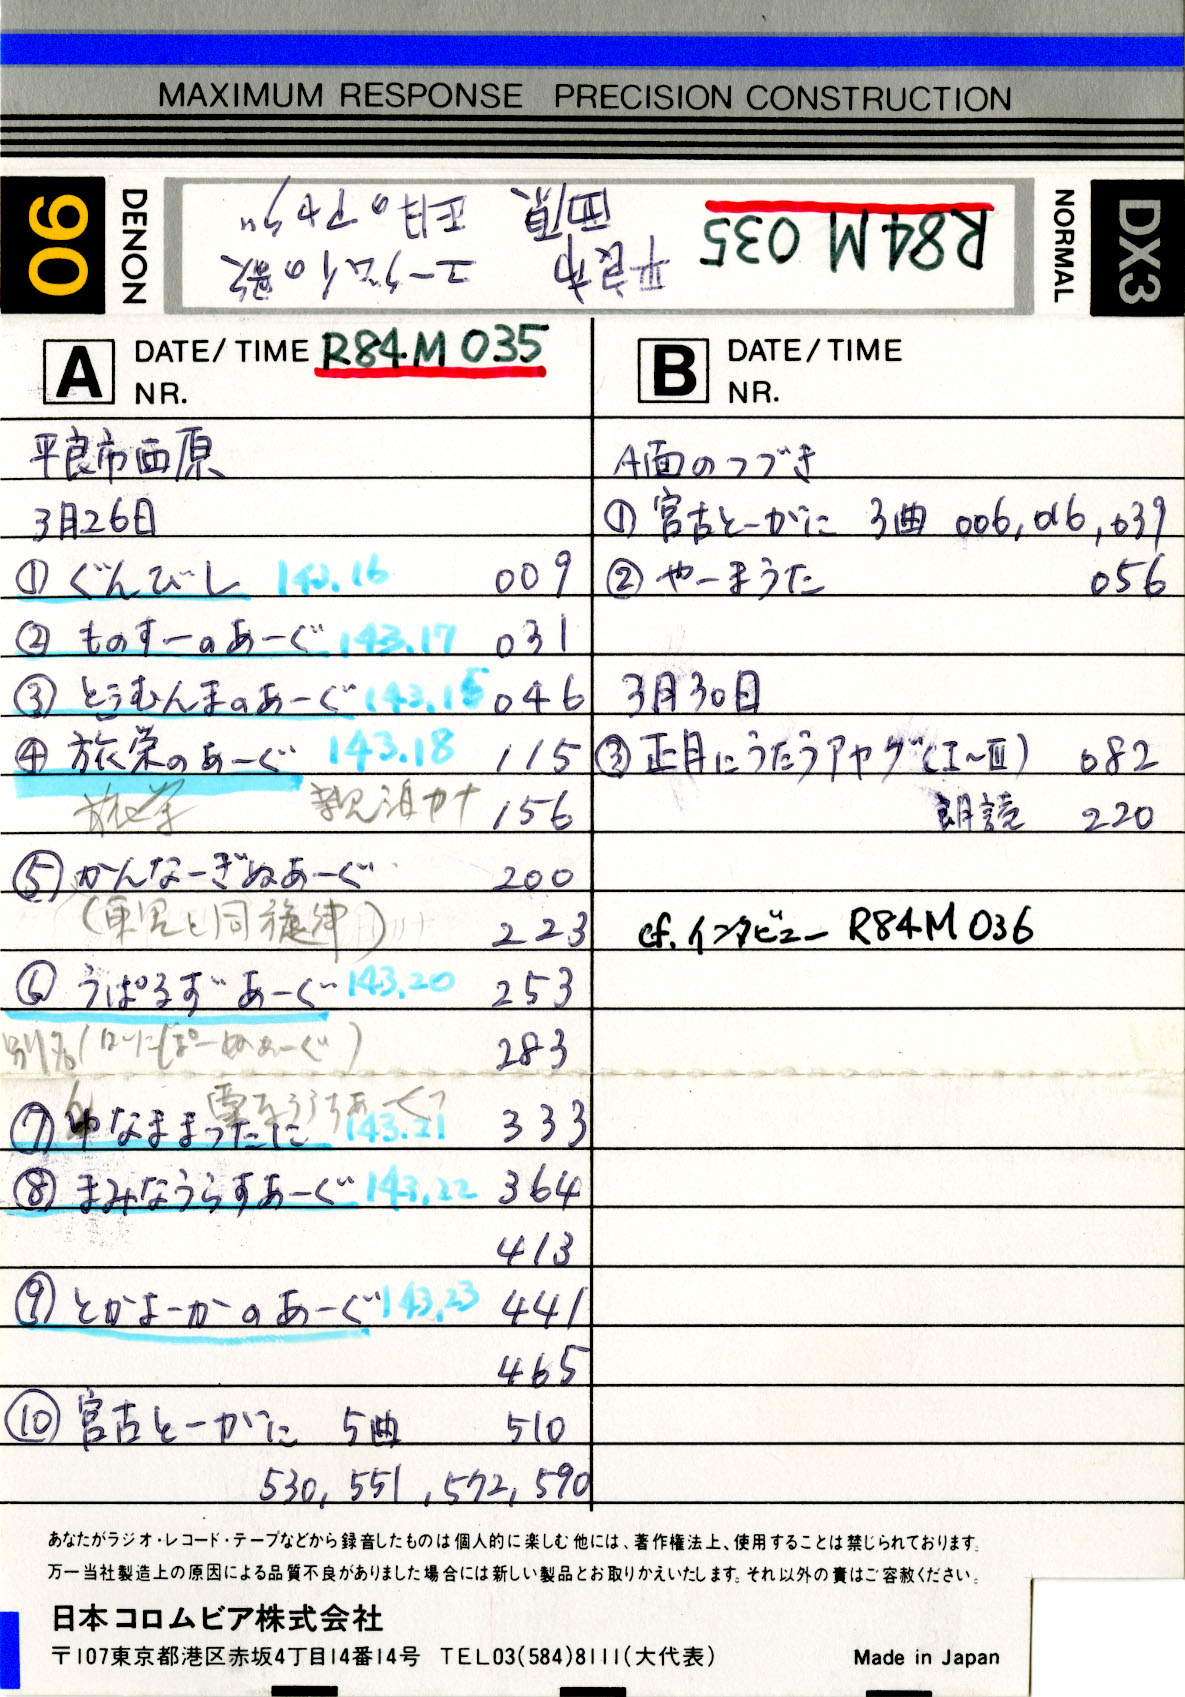 MAXIMUM RESPONSE PRECISION CONSTRUCTION
90
DENON
R84M 035
平良市 ユークイの歌
西原 正月のアヤグ
NORMAL
DX3
A DATE/TIME R84M 035
NR.
平良市西原
3月26日
① ぐんびし 143.16 009
② ものすーのあーぐ 143.17 031
③ とうむんまのあーぐ 046
④ 旅栄のあーぐ 143.18 115
旅栄 親泊カナ 156
⑤ かんなーぎぬあーぐ 200
(東里と同旋律) 223
⑥ うぱるずあーぐ 143.20 253
別名( ぬあーぐ) 283
⑦ ゆなままったに 143.21 333
⑧ まみなうらすあーぐ 143.22 364
413
⑨ とかよーかのあーぐ 143.23 441
465
⑩ 宮古とーがに 5曲 510
530, 551, 572, 590
B DATE/TIME
NR.
A面のつづき
① 宮古とーがに 3曲 006, 016, 039
② やーまうた 056
3月30日
③ 正月にうたうアヤグ(I〜III) 082
朗読 220
cf. インタビュー R84M 036
あなたがラジオ・レコード・テープなどから録音したものは個人的に楽しむ他には、著作権法上、使用することは禁じられております。
万一当社製造上の原因による品質不良がありました場合には新しい製品とお取りかえいたします。それ以外の責はご容赦ください。
日本コロムビア株式会社
〒107東京都港区赤坂4丁目14番14号 TEL03(584)8111(大代表)
Made in Japan